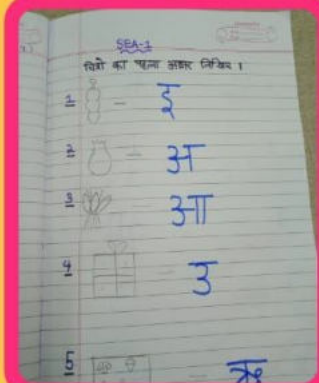 SEA-1
चित्रो का पहला अक्षर लिखिए ।
1 - इ
2 - अ
3 - आ
4 - उ
5 - ऋ